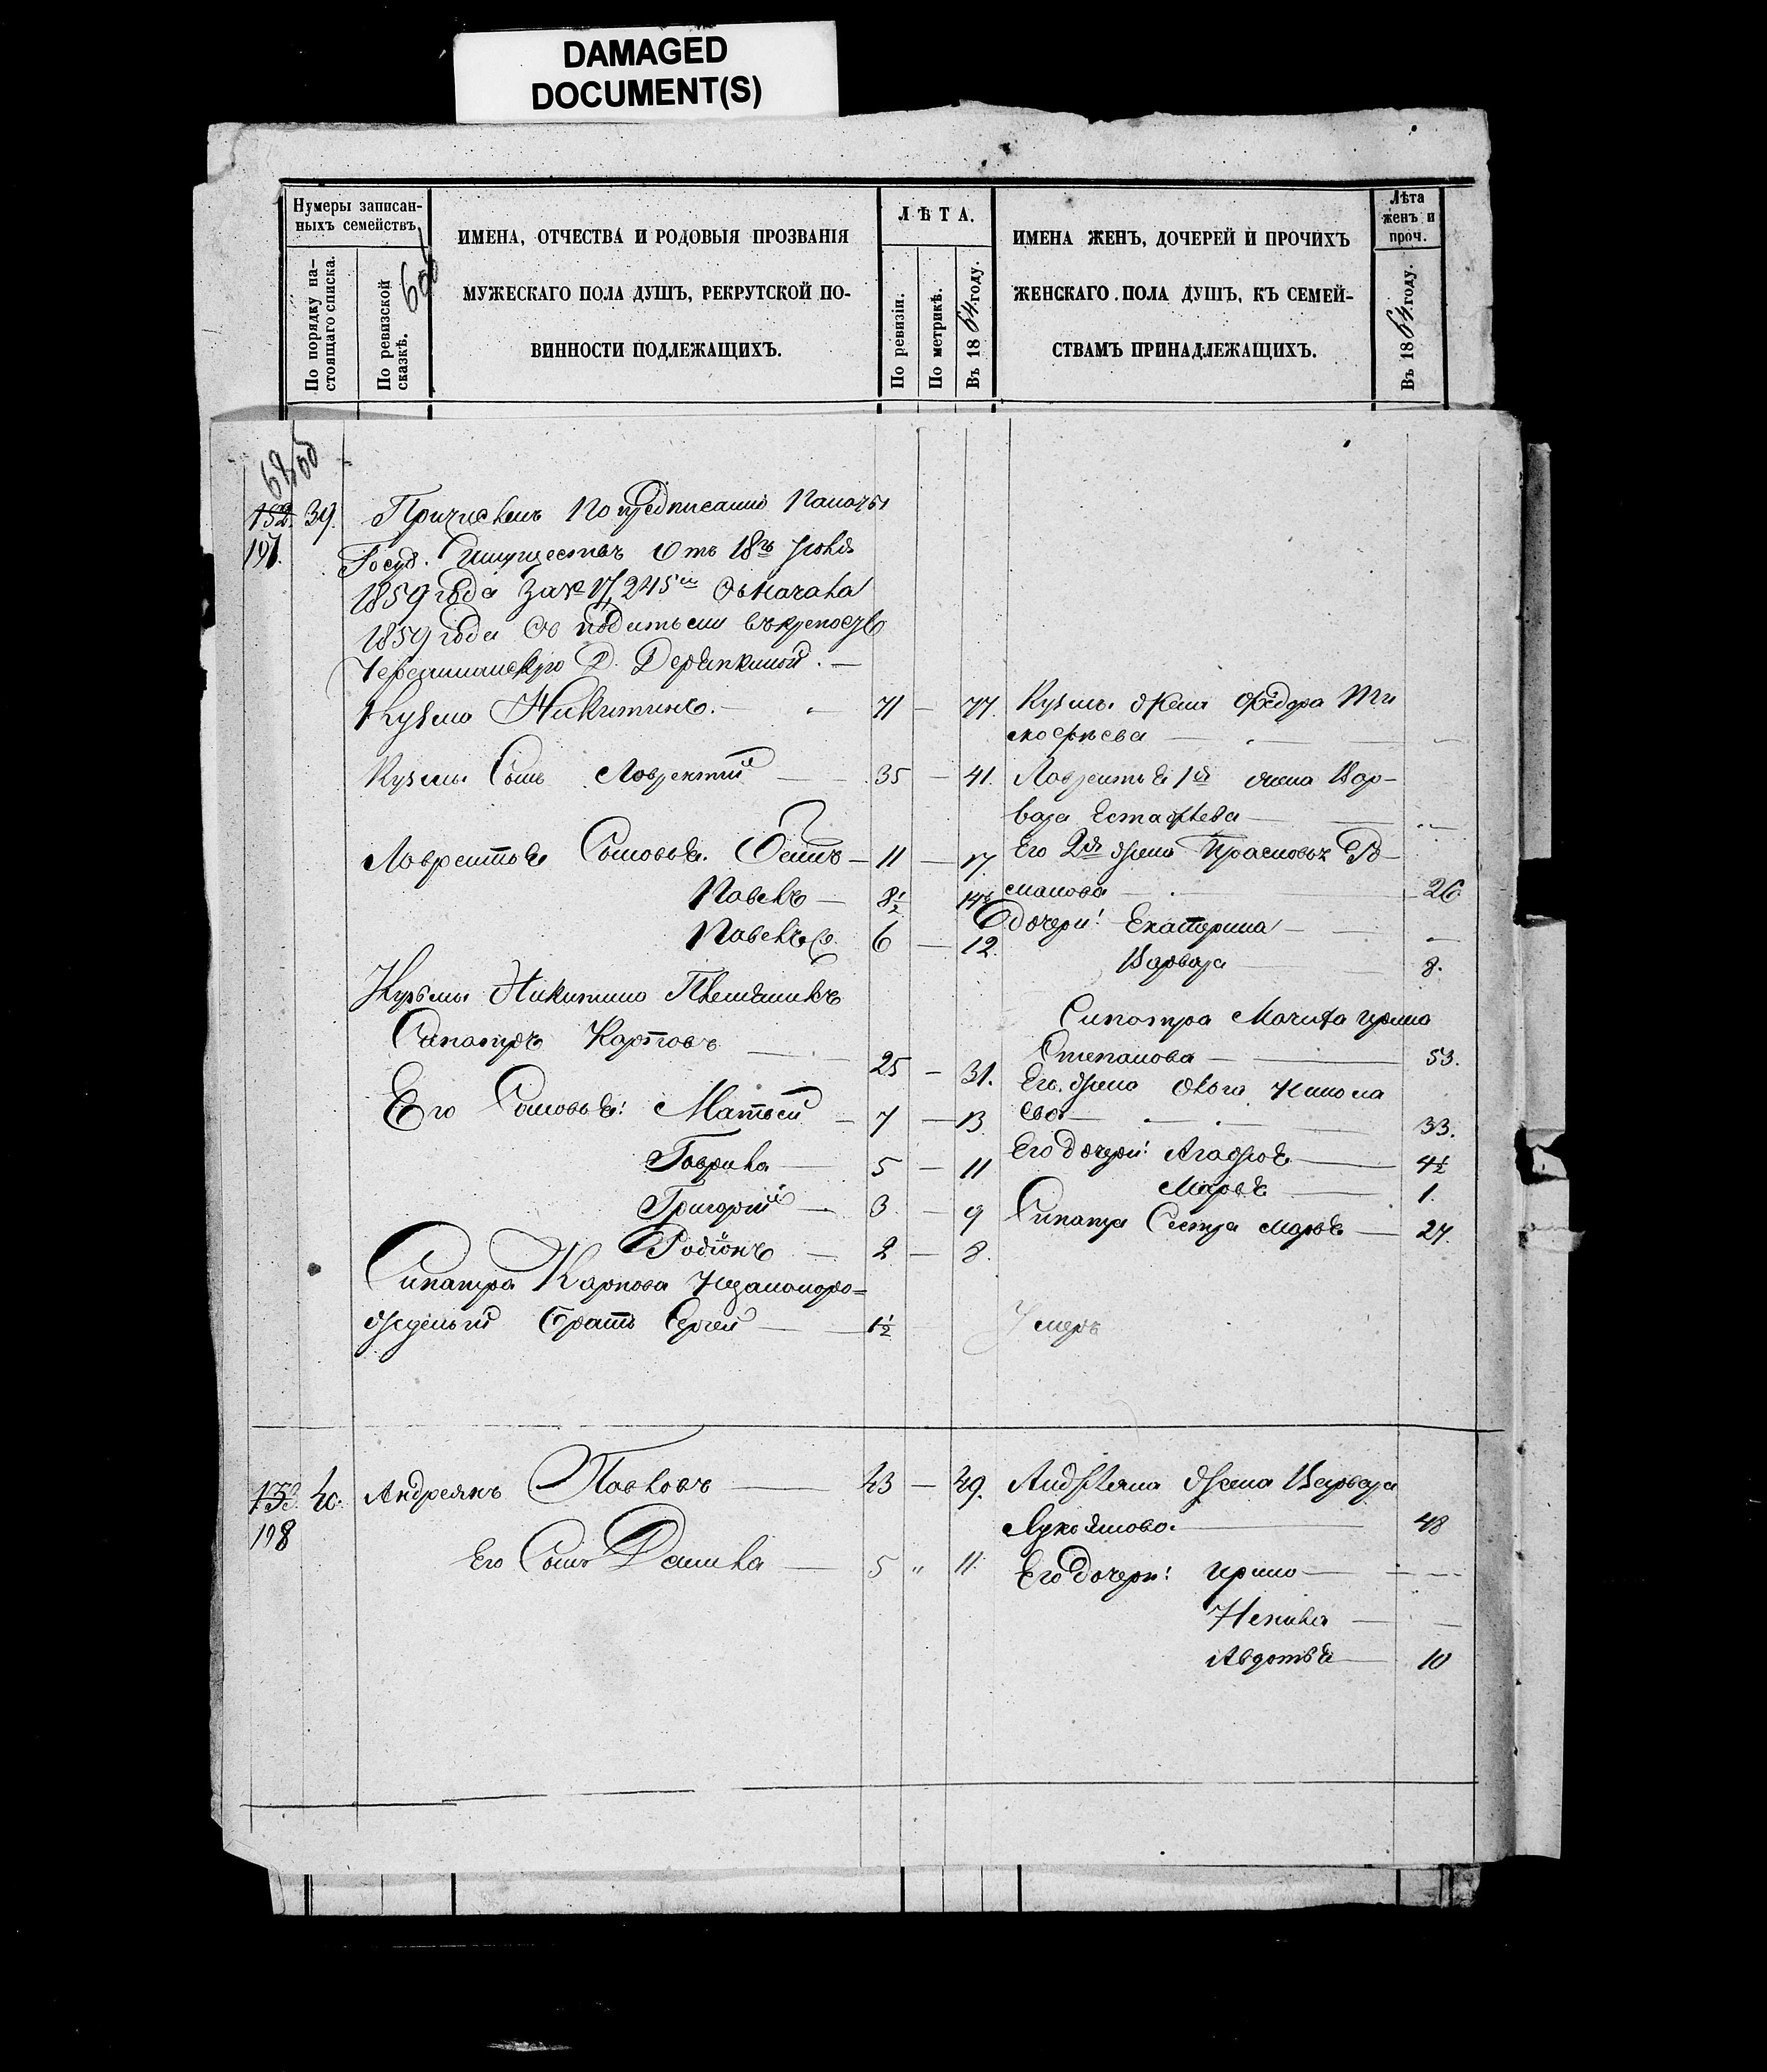 DAMAGED
DOCUMENT(S)
Нумеры записан-
ныхъ семействъ
По порядку на-
стоящаго списка.
По ревизской
сказкѣ.
ИМЕНА, ОТЧЕСТВА И РОДОВЫЯ ПРОЗВАНІЯ
МУЖЕСКАГО ПОЛА ДУШЪ, РЕКРУТСКОЙ ПО-
ВИННОСТИ ПОДЛЕЖАЩИХЪ.
ЛѢТА.
По ревизіи.
По метрикѣ.
Въ 1864 году.
ИМЕНА ЖЕНЪ, ДОЧЕРЕЙ И ПРОЧИХЪ
ЖЕНСКАГО ПОЛА ДУШЪ, КЪ СЕМЕЙ-
СТВАМЪ ПРИНАДЛЕЖАЩИХЪ.
Лѣта
женъ и
проч.
Въ 1864 году.
152. 39. Причисленъ По предписанію Палаты
197. Госуд. Имуществъ Отъ 18го Іюля
1859 года За № 17,245м Съ начала
1859 года
Кузьма Никитинъ. — 71 — 77. Кузьмы жена Ѳёдора Ти
мофѣева —
Кузьмы Сынъ Лаврентій — 35 — 41. Лаврентья 1я жена Вар-
вара Естафьева —
Лаврентья Сыновья. — 11 — 17. Его 2я жена Прасковья Ро-
Павелъ — 8½ 14½ манова — 26.
Павелъ — 6 — 12. дочери: Екатерина —
Варвара 8.
Кузьмы Никитина Племянникъ
Сипатръ Карповъ — 25 — 31. Сипатра Мачиха Ирина
Степанова — 53.
Его жена Ольга
Его Сыновья: Матвей — 7 — 13 33.
Гаврила — 5 — 11 Его дочери: Агафья — 4½
Григорій — 3 — 9 Марья — 1.
Родіонъ — 2 — 8. Сипатра Сестра Марья — 27.
Сипатра Карпова
Братъ Сергей — 1½ Умеръ
153. 40. Андреянъ Павловъ — 43 — 49. Андреяна жена Варвара
198 Лукьянова. — 48
Его Сынъ Данила — 5 " 11. Его Дочери: Ирина —
Ненила —
Авдотья — 10